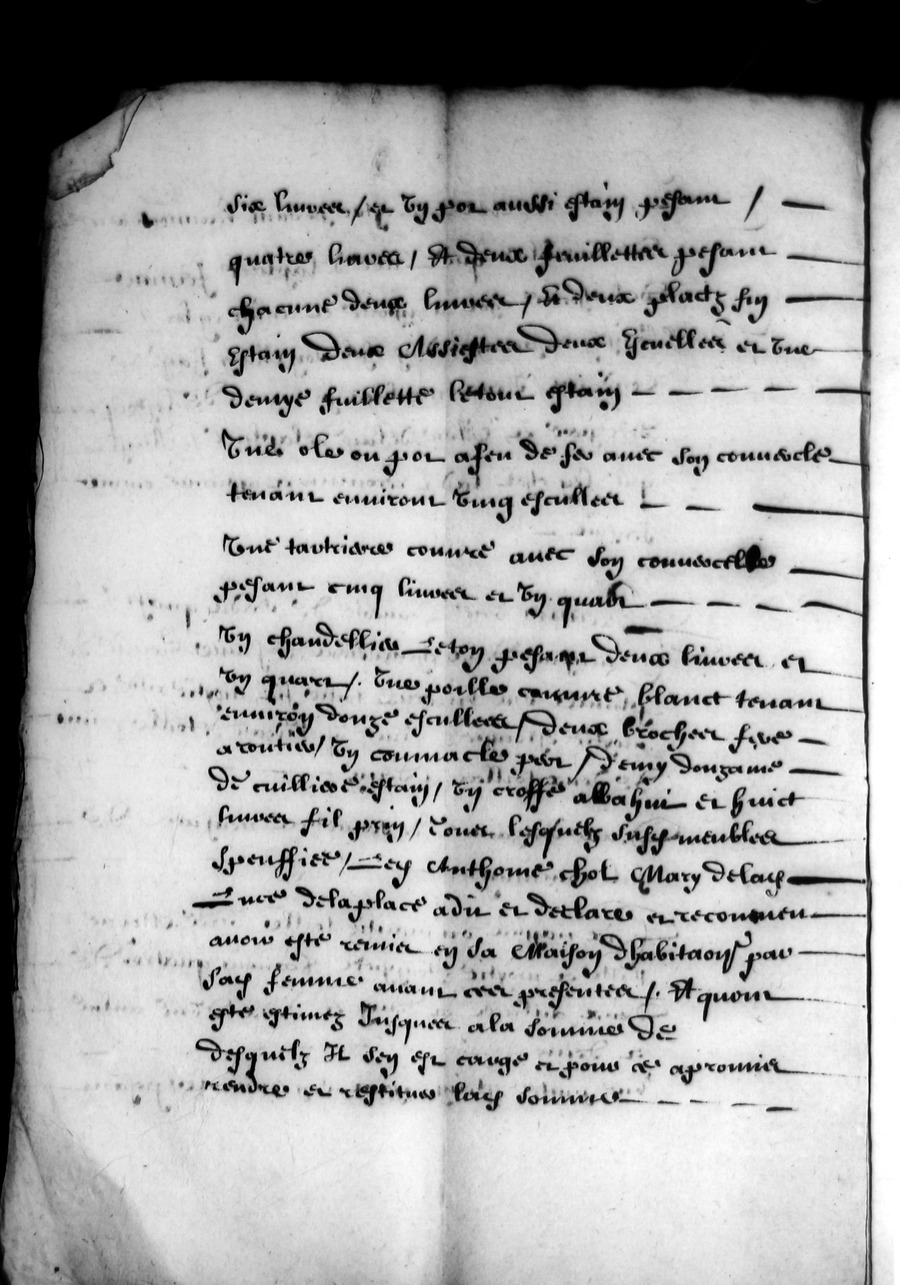 six livres / et Ung pot aussi estaing pesant /
quatre livres / Et deux fuillettes pesant
chacune deux livres / Et deux platz fin
Estaing Deux Assiettes Deux Escuelles et Une
demye fuillette letout estaing
Une ole ou pot a feu de fer avec son couvercle
tenant environt Vingt esculles
Une tartriere couivre avec son couvercelle
pesant cinq livres et Ung quart
Ung chandellier Leton pesant deux livres et
Ung quart / Une poille couivre blanct tenant
environ douze esculles / deux broches fere
a routir / Ung coumacle fer / demy douzaine
de cuilliere estaing / Ung croffe a bahui et huict
livres fil prin / Toues lesquelz susd meubles
speuffies / Led Anthoine chol Mary delad
Luce delaplace a dit et declare et recouneu
avoir esté remis en sa Maison dhabitaon par
sad femme avant ces presentes / Et quont
esté estimez Jusques a la somme de
desquelz Il sen est cargé et pour ce a promis
rendre et restituer lad somme